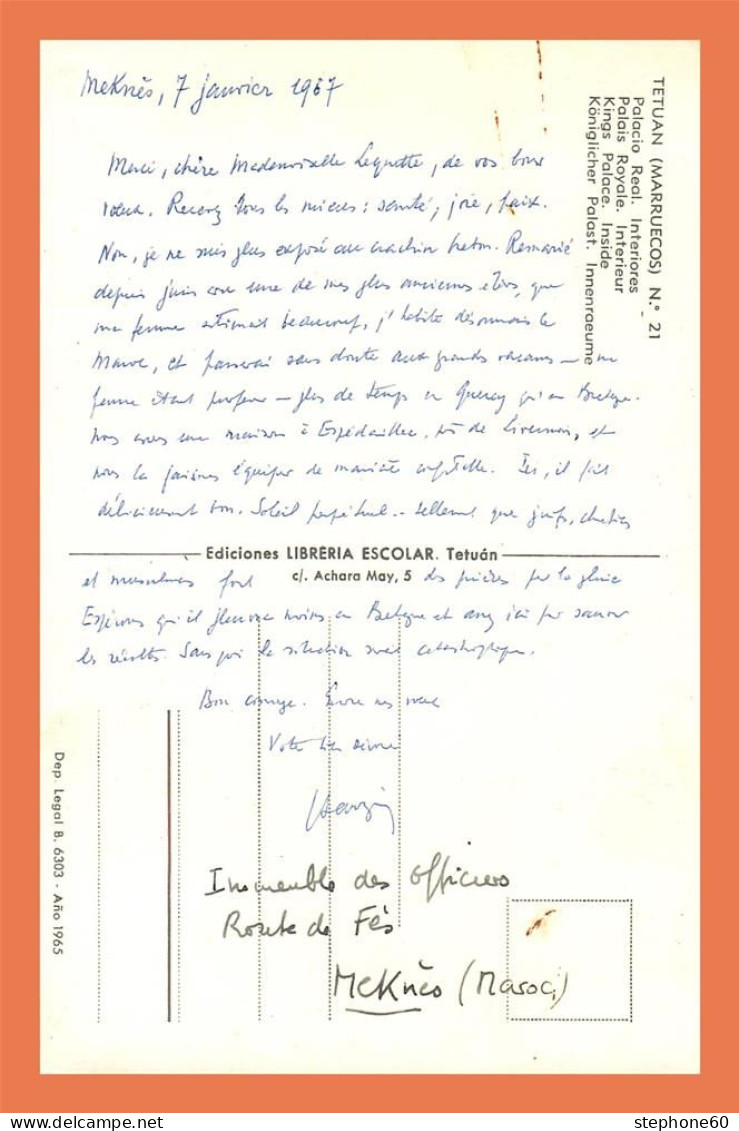 Meknès, 7 janvier 1967
TETUAN (MARRUECOS) N.° 21
Palacio Real. Interiores
Palais Royale. Interieur
Kings Palace. Inside
Königlicher Palast. Innenraeume
Merci, chère Mademoiselle Lequette, de vos bons
vœux. Recevez tous les miens : santé, joie, paix.
Non, je ne suis plus exposé au crachin breton. Remarié
depuis juin avec une de mes plus anciennes élèves, que
ma femme estimait beaucoup, j'habite désormais le
Maroc, et passerai sans doute aux grandes vacances – ma
femme étant professeur – plus de temps en Quercy qu'en Bretagne.
Nous avons une maison à Espédaillac, près de Livernon, et
nous la faisons équiper de manière. Ici, il fait
délicieusement bon. Soleil perpétuel.. tellement que juifs, chrétiens
Ediciones LIBRERIA ESCOLAR. Tetuán
c/. Achara May, 5
et musulmans font des prières pour la pluie
Espérons qu'il pleuvra moins en Bretagne et assez ici pour sauver
les récoltes. Sans quoi la situation serait catastrophique.
Bon courage. Encore mes vœux
Votre bien
Immeuble des Officiers
Route de Fès
Meknès (Maroc)
Dep. Legal B. 6303 - Año 1965
stephone60